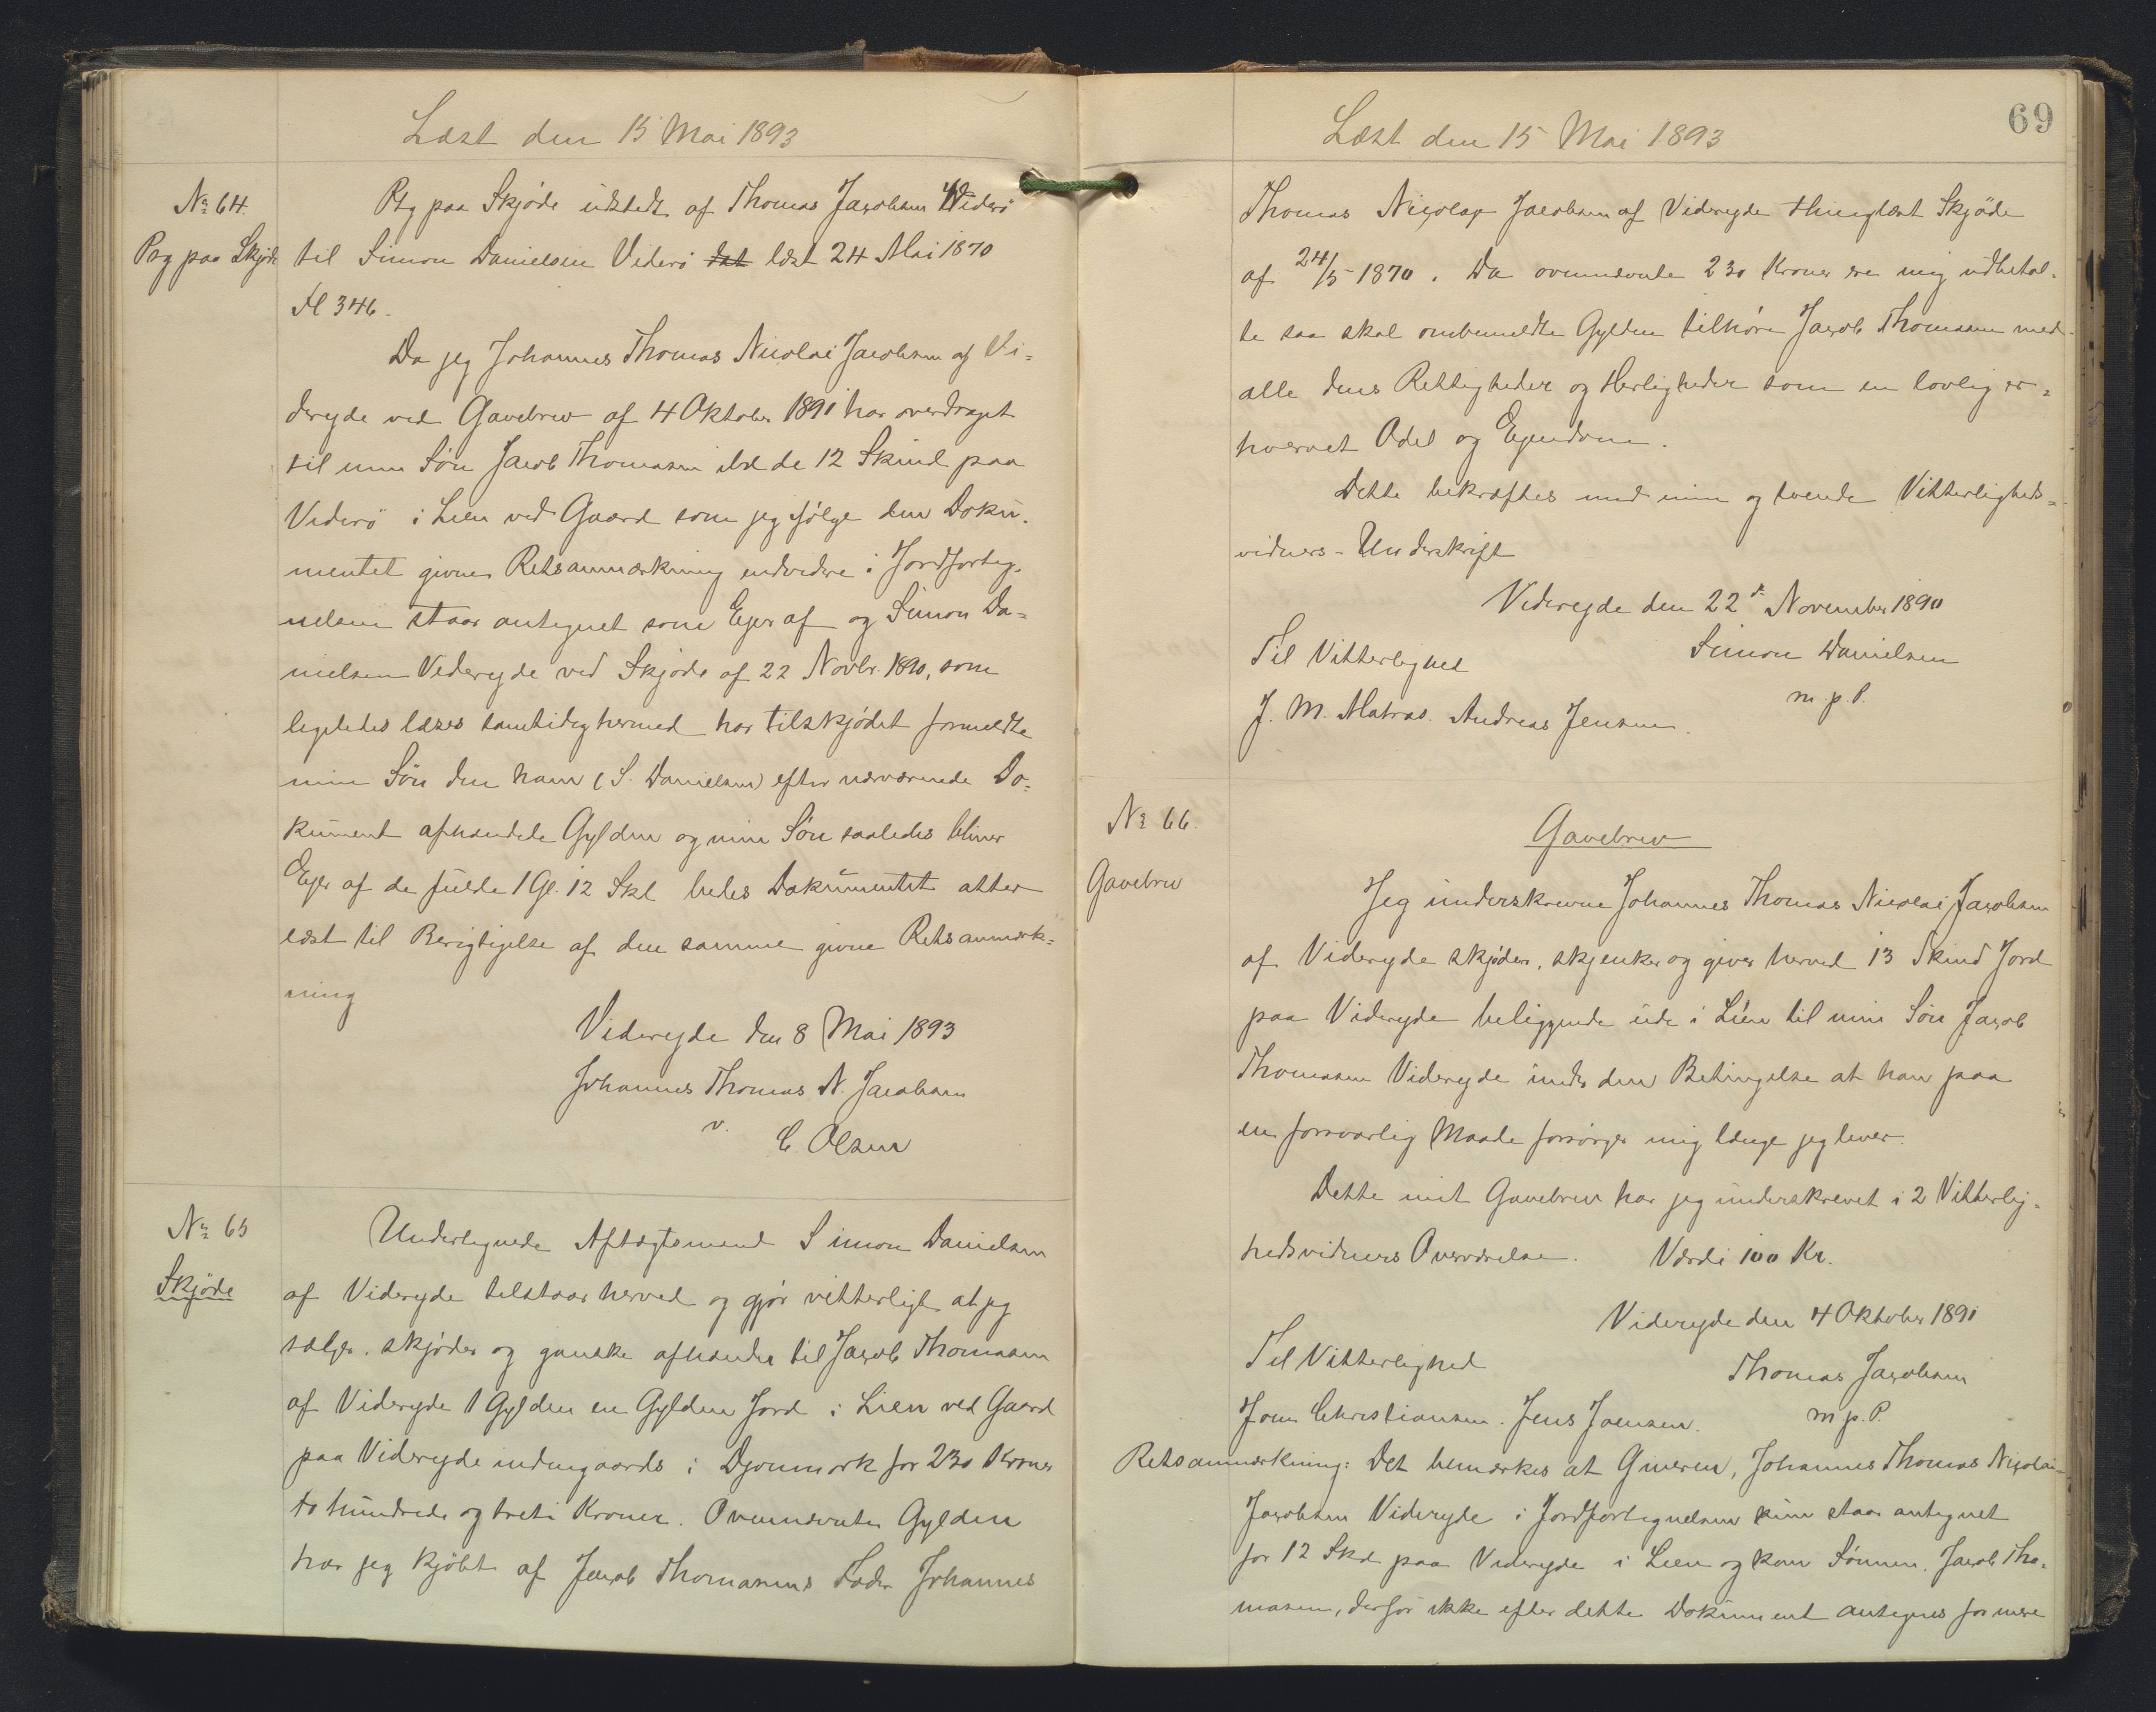 Læst den 15 Mai 1893
No 64.
Ptg paa Skjøde
Ptg paa Skjøde udstedt af Thomas Jacobsen Viderø
til Simon Danielsen Viderø dat læst 24 Mai 1870
Fl 346.
Da jeg Johannes Thomas Nicolai Jacobsen af Vi=
dereyde ved Gavebrev af 4 Oktober 1891 har overdraget
til min Søn Jacob Thomasen ibd de 12 Skind paa
Viderø i Lien ved Gaard som jeg ifølge den Doku=
mentet givne Retsanmærkning endvidere i Jordforteg=
nelsen staar antegnet som Ejer af og Simon Da=
nielsen Videreyde ved Skjøde af 22 Novbr. 1890, som
ligeledes læses samtidig hermed har tilskjødet formeldte
min Søn den ham (S. Danielsen) efter nærværende Do=
kument afhændede Gylden og min Søn saaledes bliver
Ejer af de fulde 1 Gl. 12 Skl bedes Dokumentet atter
læst til Berigtigelse af den samme givne Retsanmærk=
ning
Videreyde den 8 Mai 1893
Johannes Thomas N. Jacobsen
v. C. Olsen
No 65
Skjøde
Undertegnede Aftægtsmand Simon Danielsen
af Videreyde tilstaar herved og gjør vitterligt at jeg
sælger, skjøder og ganske afhænder til Jacob Thomasen
af Videreyde 1 Gylden en Gylden Jord i Lien ved Gaard
paa Videreyde indengaards i Djonmørk for 230 Kroner
to hundrede og treti Kroner. Ovennævnte Gylden
har jeg kjøbt af Jacob Thomasens Fader Johannes
69
Læst den 15 Mai 1893
Thomas Nicolay Jacobsen af Videreyde thinglæst Skjøde
af 24/5 1870. Da ovennævnte 230 Kroner ere mig udbetal=
te saa skal ombemeldte Gylden tilhøre Jacob Thomasen med
alle dens Rettigheder og Herligheder som en lovlig er=
hvervet Odel og Ejendom.
Dette bekræftes med min og tvende Vitterligheds=
vidners-Underskrift
Videreyde den 22de November 1890
Til Vitterlighed
Simon Danielsen
J. M. Matras. Andreas Jensen.
m. p. P.
No 66.
Gavebrev
Gavebrev
Jeg underskrevne Johannes Thomas Nicolai Jacobsen
af Videreyde skjøder, skjenker og giver herved 13 Skind Jord
paa Videreyde beliggende ude i Lien til min Søn Jacob
Thomasen Videreyde under den Betingelse at han paa
en forsvarlig Maade forsørger mig længe jeg lever.
Dette mit Gavebrev har jeg underskrevet i 2 Vitterlig=
hedsvidners Overværelse. Værdi 100 Kr.
Videreyde den 4 Oktober 1891
Til Vitterlighed
Thomas Jacobsen
Joen Christiansen. Jens Joensen.
m p. P.
Retsanmærkning: Det bemærkes at Giveren, Johannes Thomas Nicolai
Jacobsen Videreyde i Jordfortegnelsen kun staar antegnet
for 12 Skd paa Videreyde i Lien og kan Sønnen, Jacob Tho=
masen, derfor ikke efter dette Dokument antegnes for mere